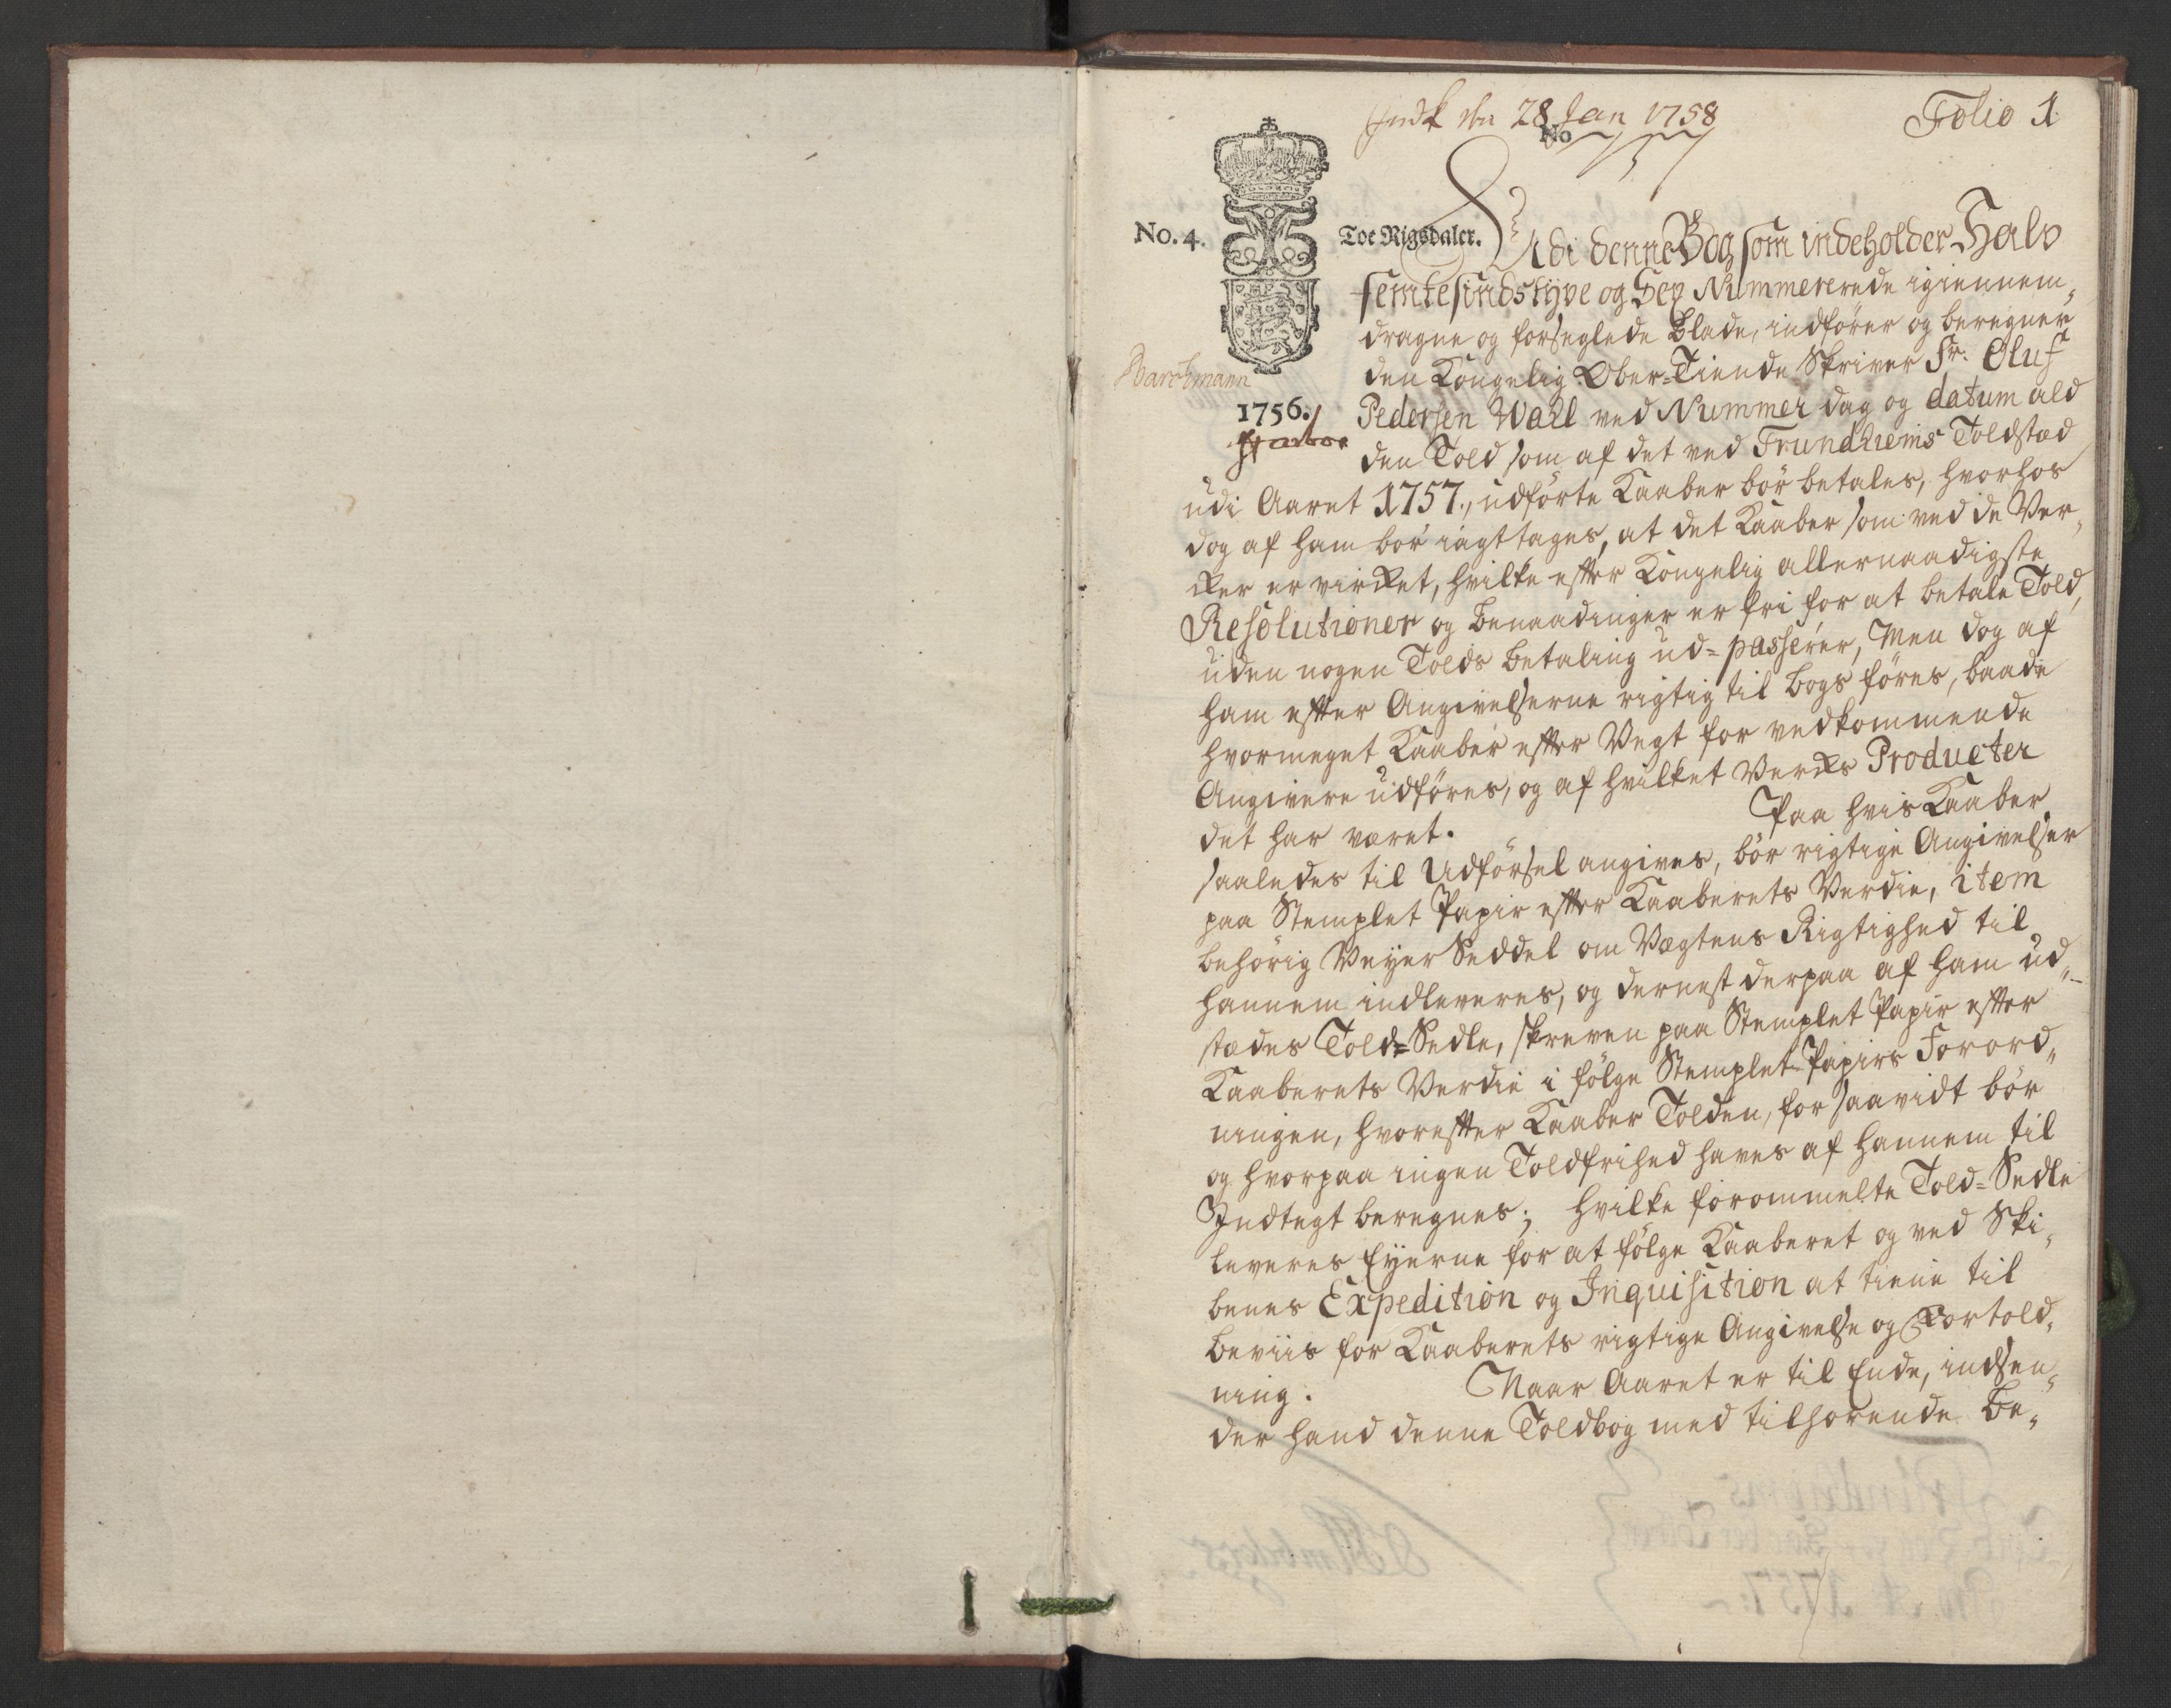 Indk den 28 Jan 1758
Folio 1
No
No. 4.
Toe Rigsdaler.
Barchmann
1756.
Udi denne Bog som indeholder Halv
femtesindstyve og Sex Nummererede igiennem„
dragne og forseglede Blade, indfører og beregner
den Kongelig: Ober=Tiende Skriver Sr: Oluf
Pedersen Wall ved Nummer dag og datum ald
den Told som af det ved Trundhiems Toldstæd
udi Aaret 1757., udførte Kaaber bør betales, hvorhos
dog af ham bør iagttages, at det Kaaber som ved de Ver„
cker er vircket, hvilke efter Kongelig allernaadigste
Resolutioner og Benaadinger er fri for at betale Told,
uden nogen Tolds Betaling ud=passerer, Men dog af
ham efter Angivelserne rigtig til Bogs føres, baade
hvormeget Kaaber efter Vegt for vedkommende
Angivere udføres, og af hvilket Vercks Producter
det har været.
Paa hvis Kaaber
saaledes til Udførsel angives, bør rigtige Angivelser
paa Stemplet Papir efter Kaaberets Verdie, item
behørig Veyer Seddel om Vegtens Rigtighed til
hannem indleveres, og dernest derpaa af ham ud„
stædes Told=Sedle, skreven paa Stemplet Papir efter
Kaaberets Verdie i følge Stemplet-Papirs Forord„
ningen, hvorefter Kaaber Tolden, for saavidt bør
og hvorpaa ingen Toldfrihed haves af hannem til
Indtegt beregnes; hvilke forommelte Told=Sedle
leveres Eyerne for at følge Kaaberet og ved Ski„
benes Expedition og Inquisition at tiene til
Beviis for Kaaberets rigtige Angivelse og Fortold„
ning.
Naar Aaret er til Ende, indsen„
der hand denne Toldbog med tilhørende Be„